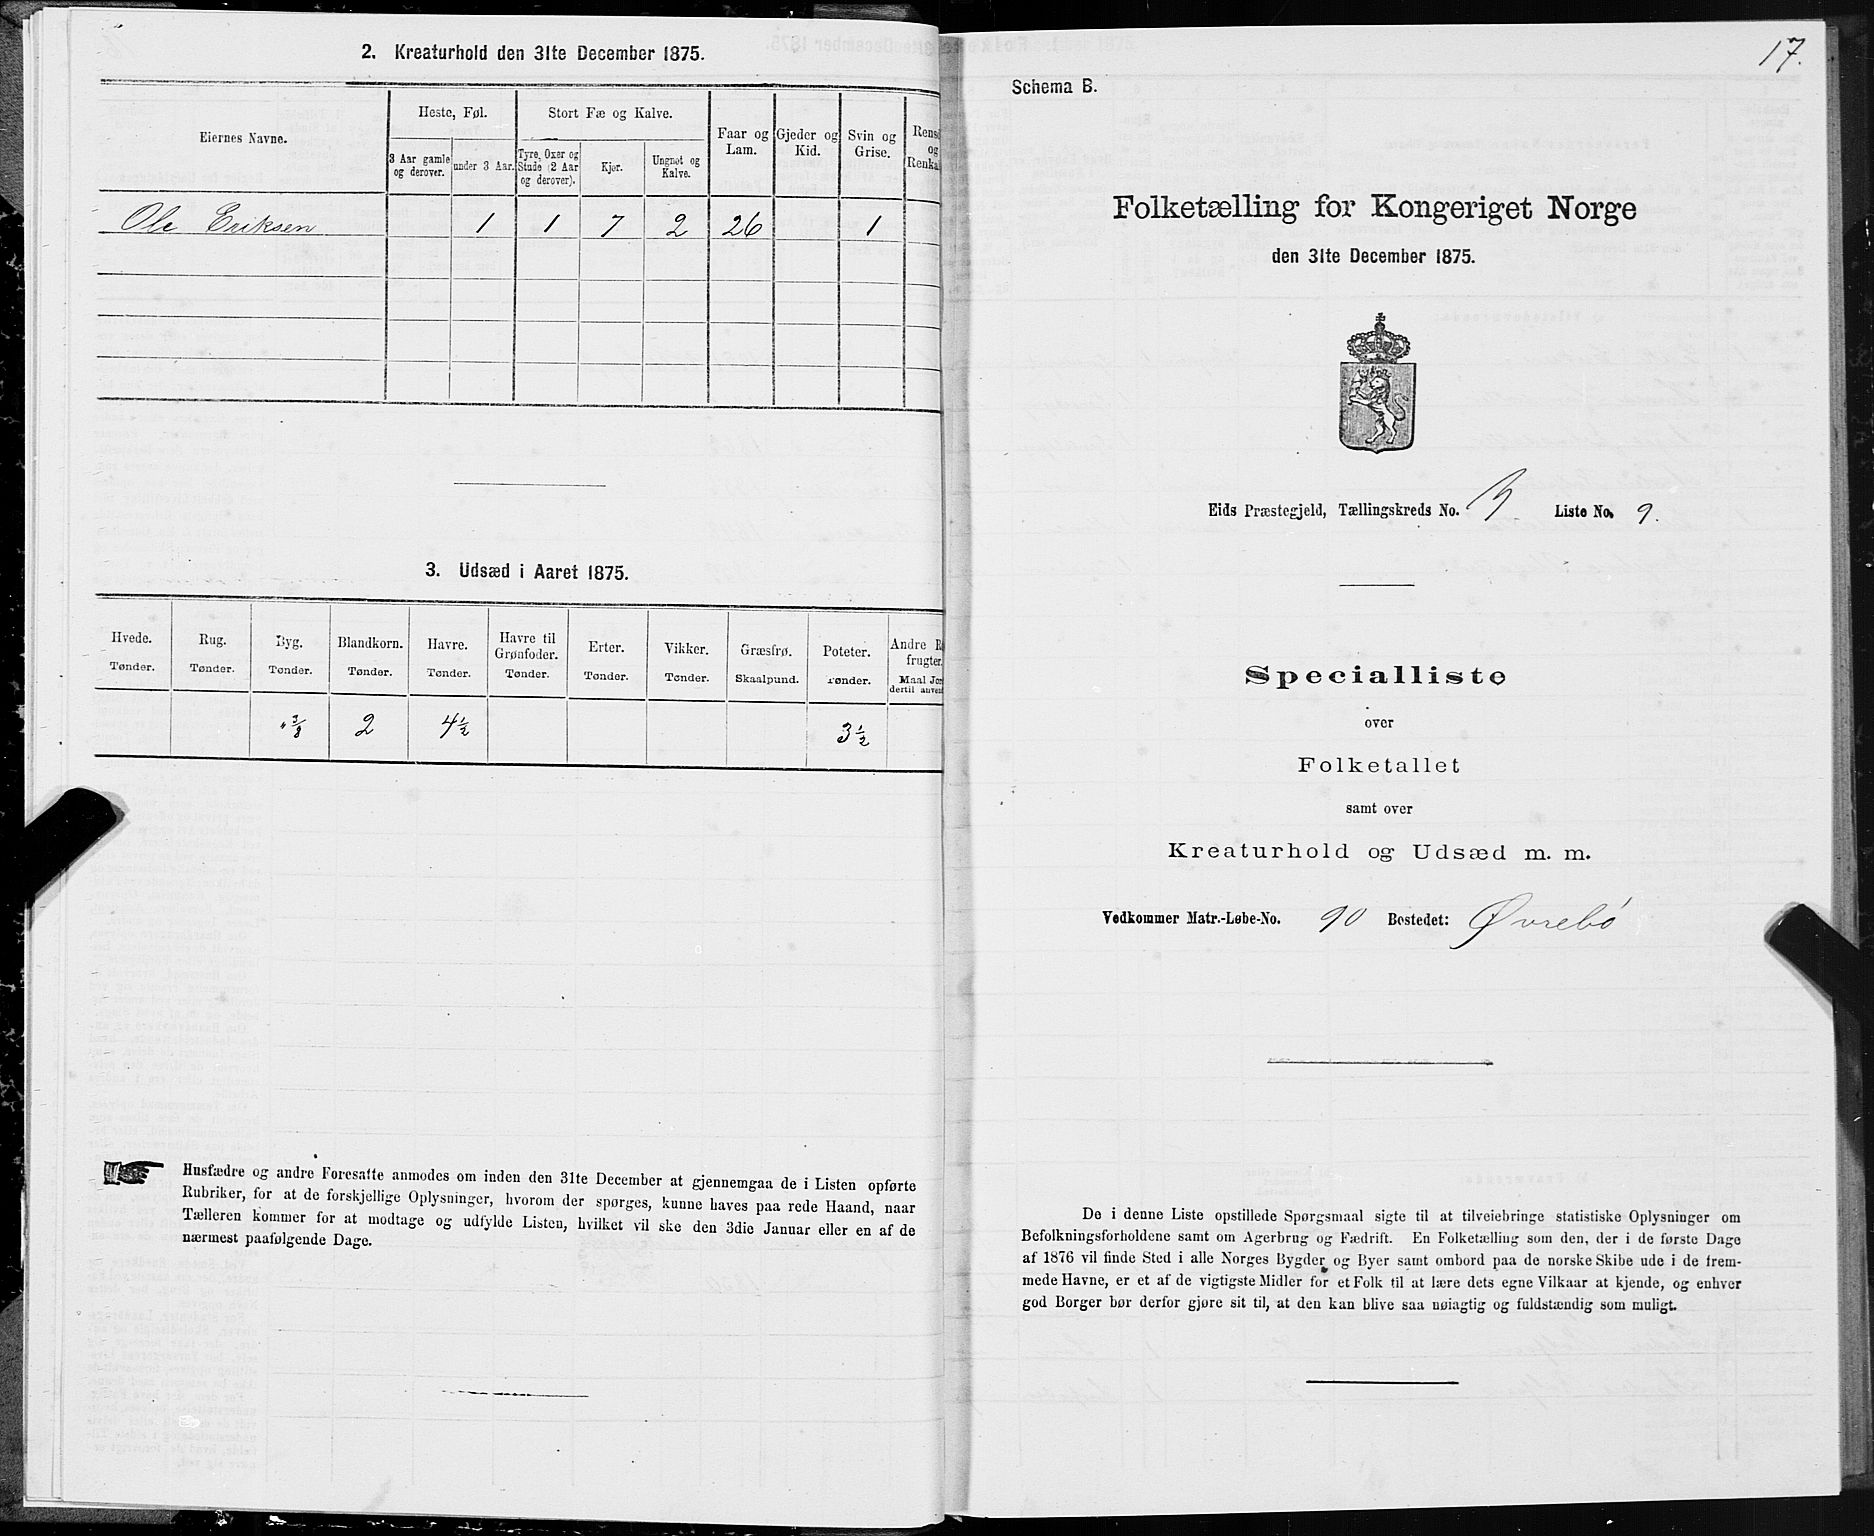 2. Kreaturhold den 31te December 1875.
Eiernes Navne.
Heste, Føl.
Stort Fæ og Kalve.
Faar og Lam.
Gjeder og Kid.
Svin og Grise.
og
3 Aar gamle og derover.
under 3 Aar.
Tyre, Oxer og Stude (2 Aar og derover).
Kjør.
Ungnøt og Kalve.
Ole Eriksen 1 1 7 2 26 1
3. Udsæd i Aaret 1875.
Hvede. Tønder.
Rug. Tønder.
Byg. Tønder.
Blandkorn. Tønder.
Havre. Tønder.
Havre til Grønfoder. Tønder.
Erter. Tønder.
Vikker. Tønder.
Græsfrø. Skaalpund.
Poteter. Tønder.
Andre
frugter.
Maal
dertil
2 4 1/2 3 1/2
Husfædre og andre Foresatte anmodes om inden den 31te December at gjennemgaa de i Listen opførte
Rubriker, for at de forskjellige Oplysninger, hvorom der spørges, kunne haves paa rede Haand, naar
Tælleren kommer for at modtage og udfylde Listen, hvilket vil ske den 3die Januar eller en af de
nærmest paafølgende Dage.
17.
Schema B.
Folketælling for Kongeriget Norge
den 31te December 1875.
Eids Præstegjeld, Tællingskreds No. Liste No. 9.
Specialliste
over
Folketallet
samt over
Kreaturhold og Udsæd m. m.
Vedkommer Matr.-Løbe-No. 90 Bostedet: Øvrebó
De i denne Liste opstillede Spørgsmaal sigte til at tilveiebringe statistiske Oplysninger om
Befolkningsforholdene samt om Agerbrug og Fædrift. En Folketælling som den, der i de første Dage
af 1876 vil finde Sted i alle Norges Bygder og Byer samt ombord paa de norske Skibe ude i de frem-
mede Havne, er et af de vigtigste Midler for et Folk til at lære dets egne Vilkaar at kjende, og enhver
god Borger bør derfor gjøre sit til, at den kan blive saa nøiagtig og fuldstændig som muligt.